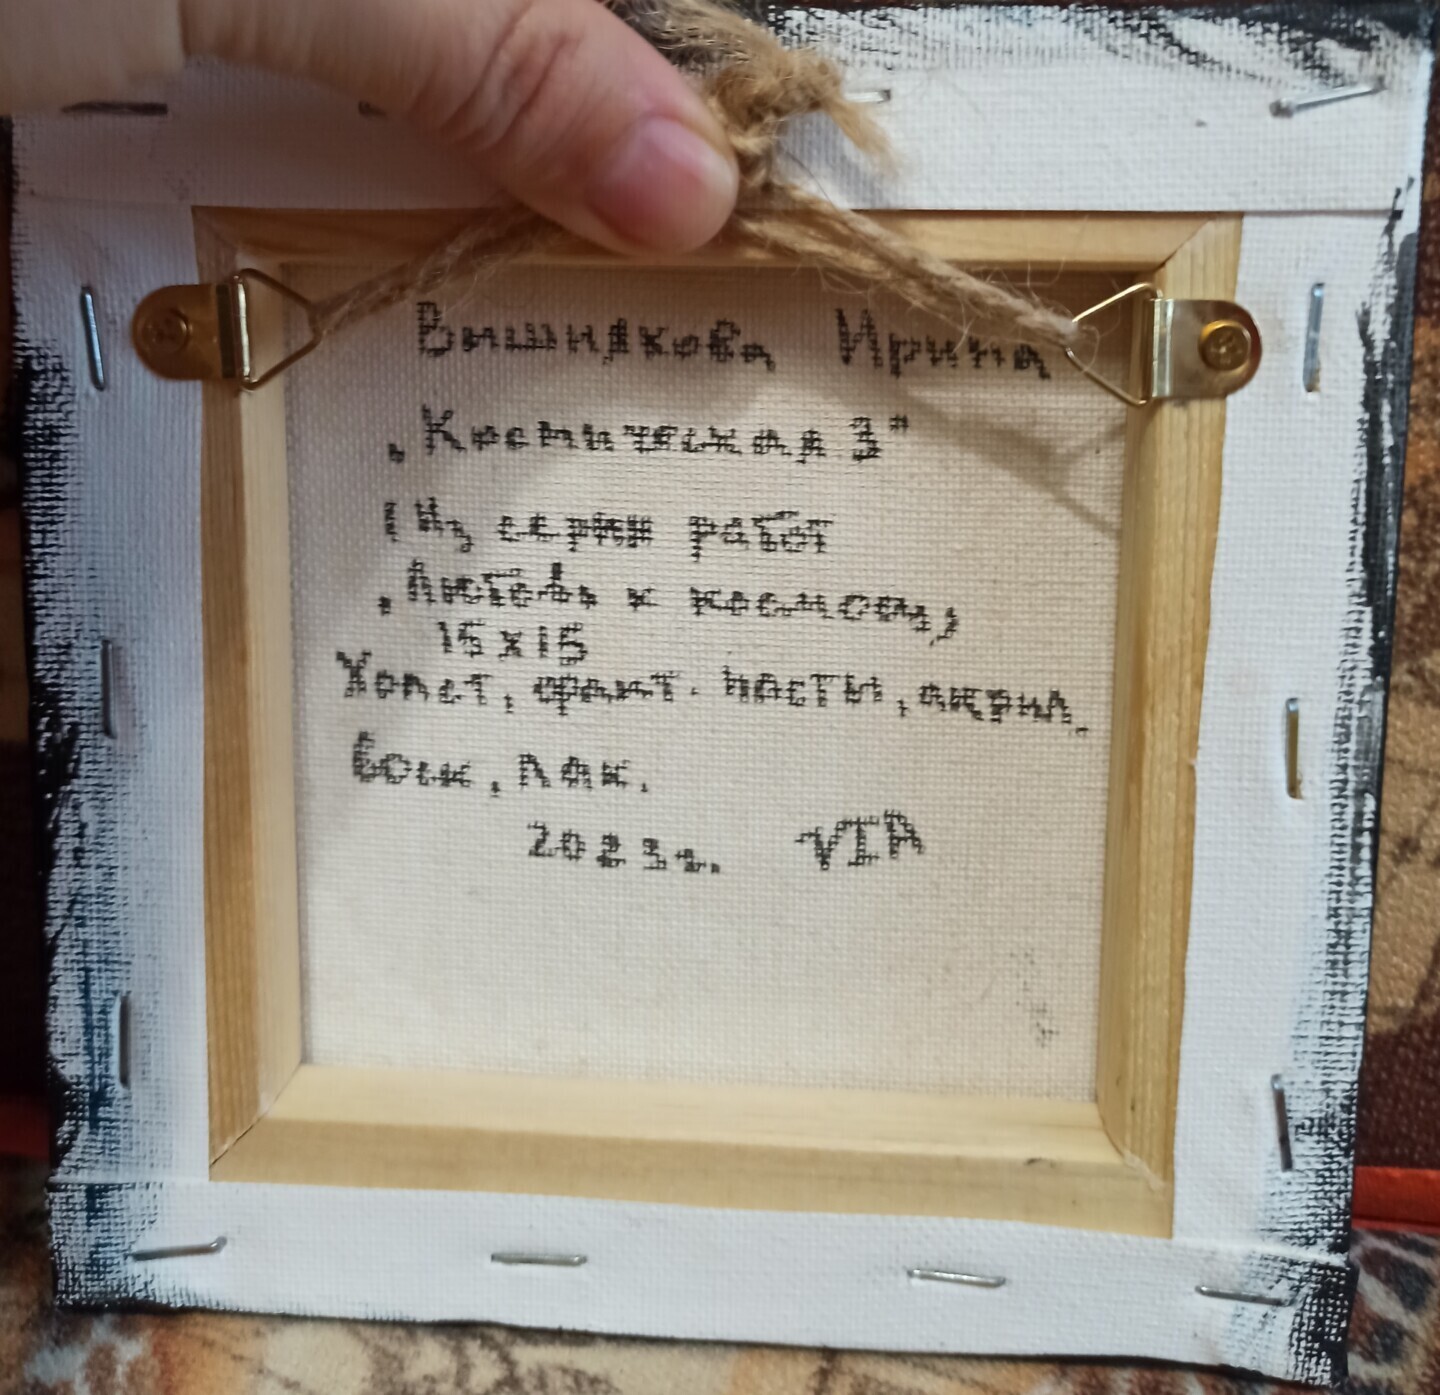 Вишнякова Ирина
„Космическая 3"
(Из серии работ
„Любовь к космосу)
15x15
Холст, факт. пасты, акрил,
воск, лак.
2023г. VIA